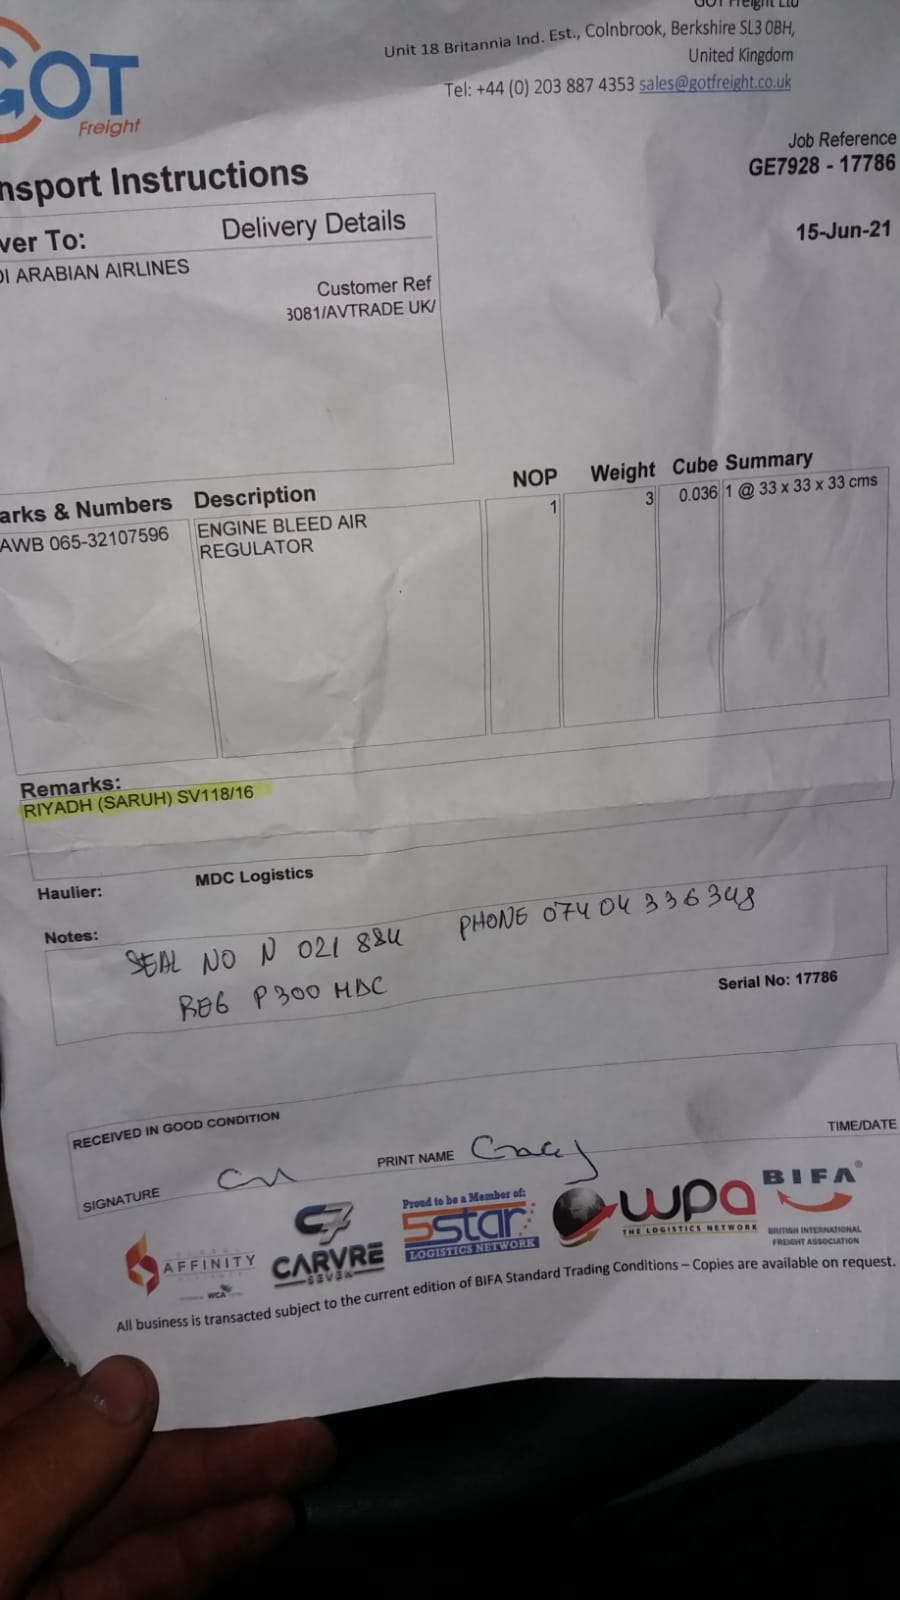 GOT Freight Ltd
Unit 18 Britannia Ind. Est., Colnbrook, Berkshire SL3 0BH,
United Kingdom
Tel: +44 (0) 203 887 4353 sales@gotfreight.co.uk
GOT
Freight
Job Reference
GE7928 - 17786
nsport Instructions
15-Jun-21
ver To:
Delivery Details
DI ARABIAN AIRLINES
Customer Ref
3081/AVTRADE UK/
arks & Numbers Description NOP Weight Cube Summary
AWB 065-32107596 ENGINE BLEED AIR 1 3 0.036 1 @ 33 x 33 x 33 cms
REGULATOR
Remarks:
RIYADH (SARUH) SV118/16
Haulier: MDC Logistics
Notes:
SEAL NO N 021 884 PHONE 07404 336348
REG P300 MDC
Serial No: 17786
RECEIVED IN GOOD CONDITION
SIGNATURE PRINT NAME TIME/DATE
AFFINITY
WCA
C7
CARVRE
SEVEN
Proud to be a Member of:
5star
LOGISTICS NETWORK
wpa
THE LOGISTICS NETWORK
BIFA®
BRITISH INTERNATIONAL
FREIGHT ASSOCIATION
All business is transacted subject to the current edition of BIFA Standard Trading Conditions – Copies are available on request.